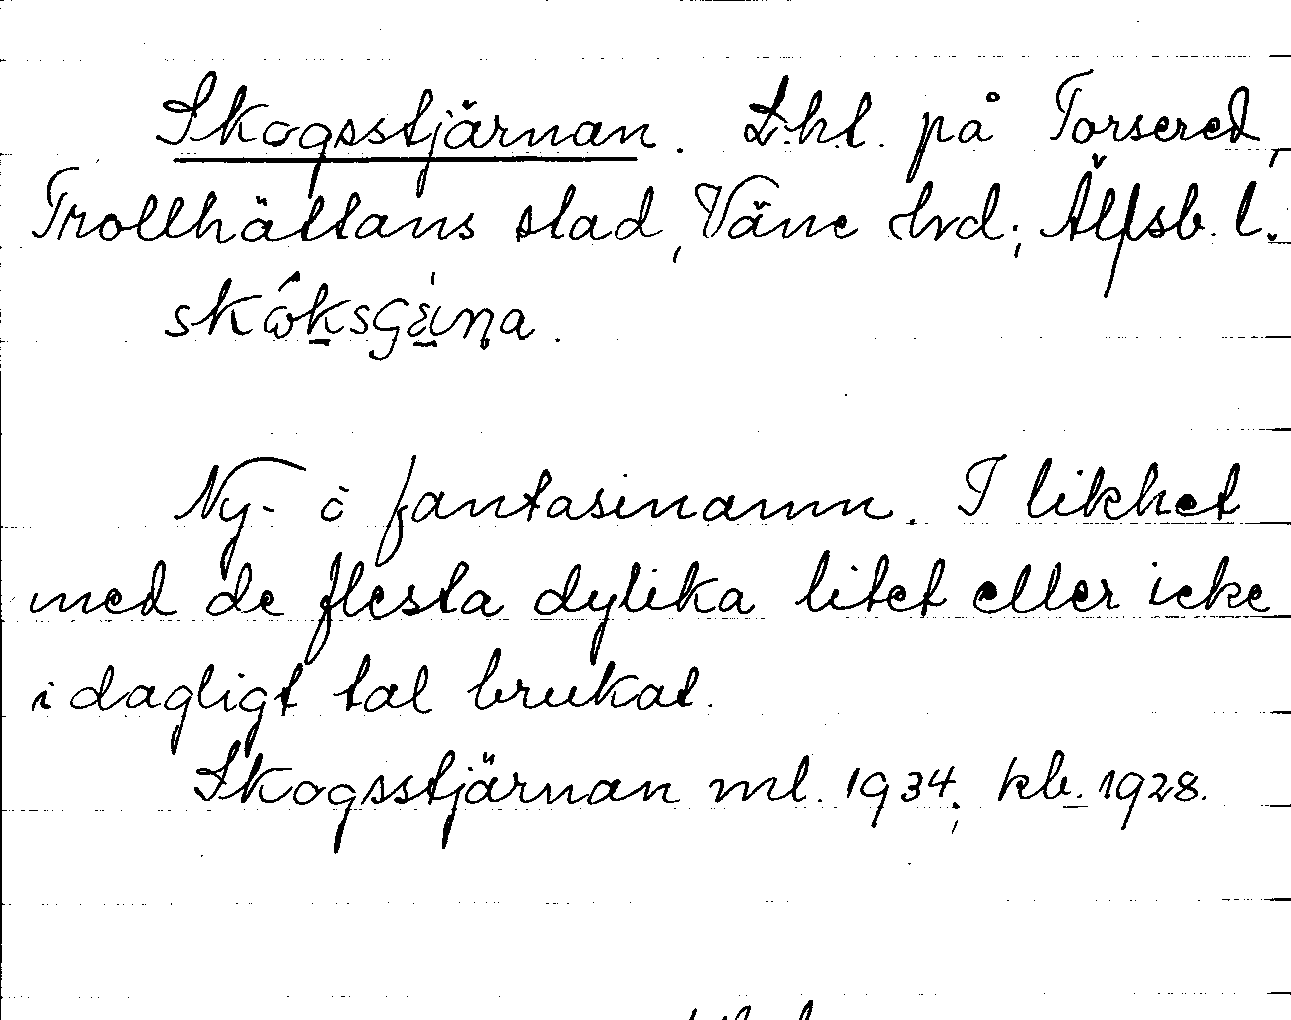 Skogsstjärnan. Lht. på Torsered,
Trollhättans stad, Väne hrd; Älfsb. l.
Ny- o fantasinamn. I likhet
med de flesta dylika litet eller icke
i dagligt tal brukat.
Skogsstjärnan ml. 1934; kb. 1928.